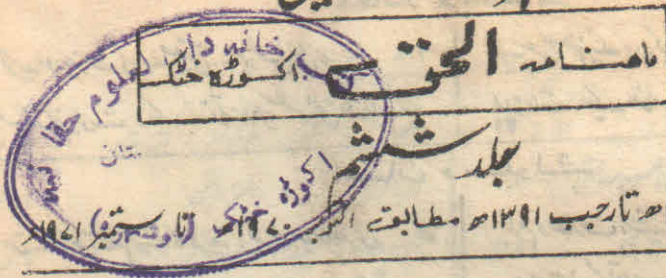 ماهنامہ الحق اکوڑہ خٹک
جلد ششم
ھ تا رجب ۱۳۹۱ھ مطابق اکتوبر ۱۹۷۰ء تا ستمبر ۱۹۷۱ء
کتب خانہ دارالعلوم حقانیہ
اکوڑہ خٹک